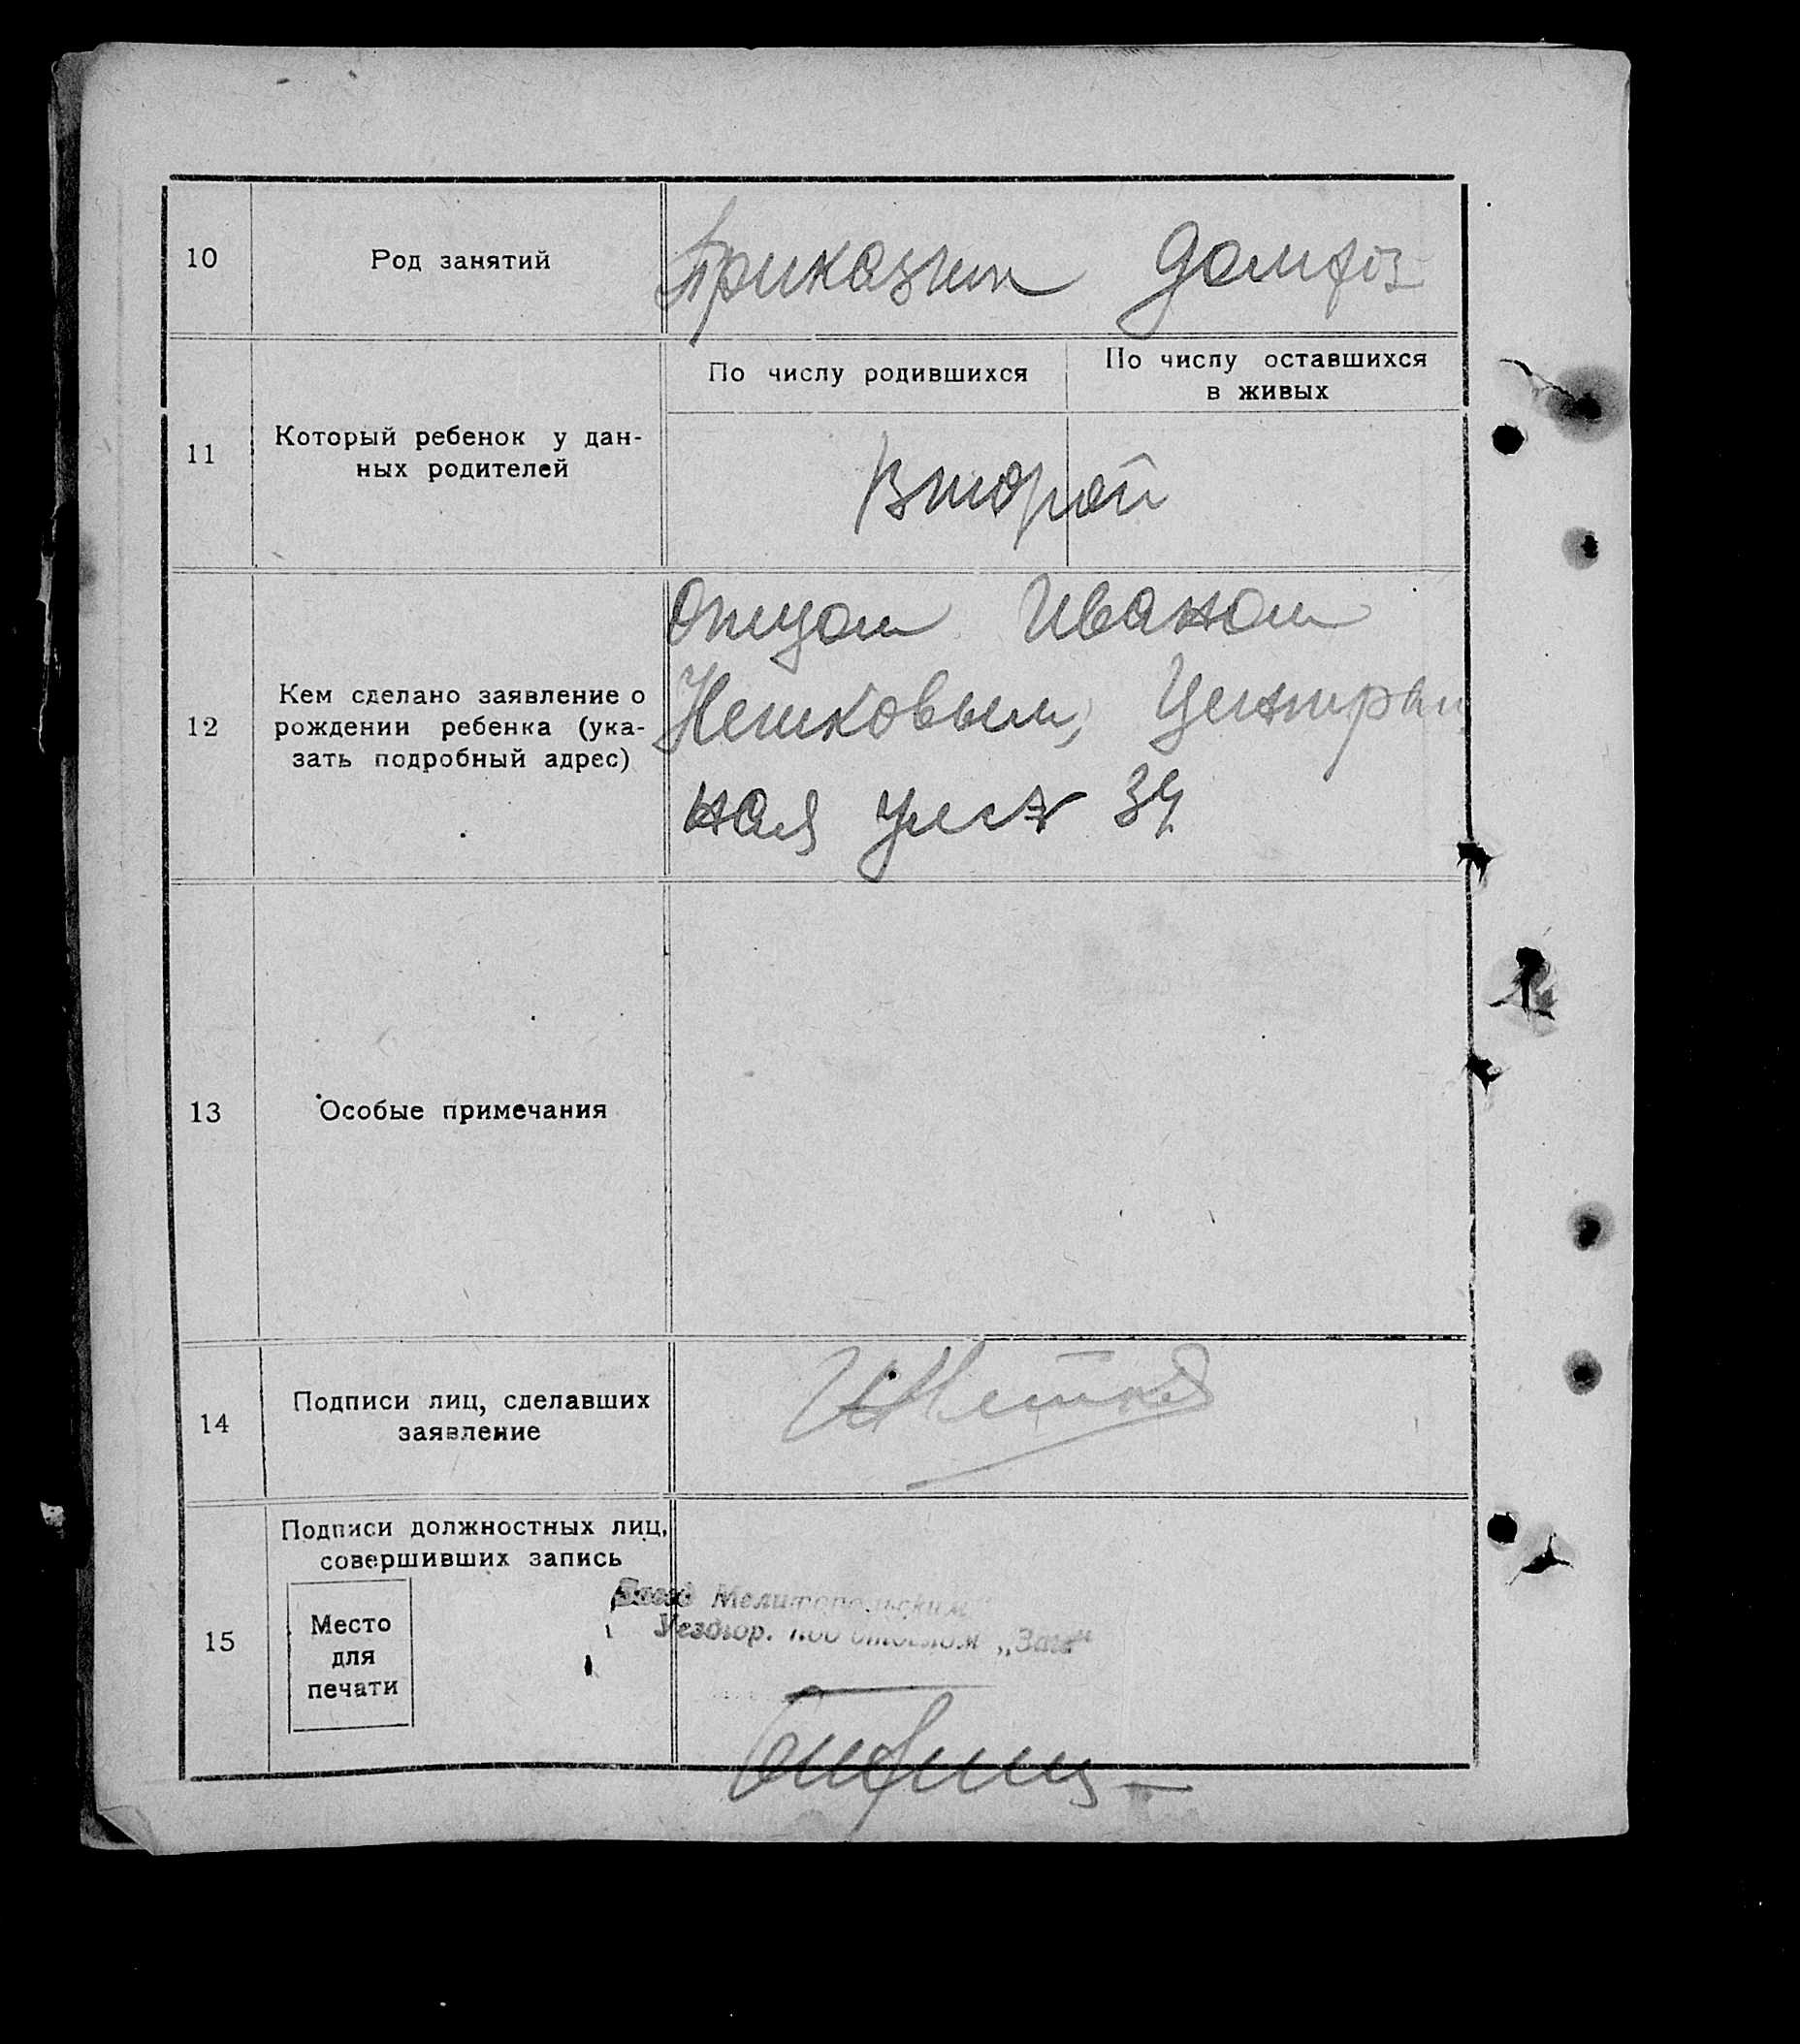 10 Род занятий Приказчик домхоз
По числу родившихся По числу оставшихся
в живых
11 Который ребенок у дан-
ных родителей
Второй
12 Кем сделано заявление о
рождении ребенка (ука-
зать подробный адрес)
Отцом Иваном
Нетковым, Централ
ная улица 34
13 Особые примечания
14 Подписи лиц, сделавших
заявление
15 Подписи должностных лиц,
совершивших запись
Место
для
печати
Мелитопольским
Уездгор. под отделом „Загс“